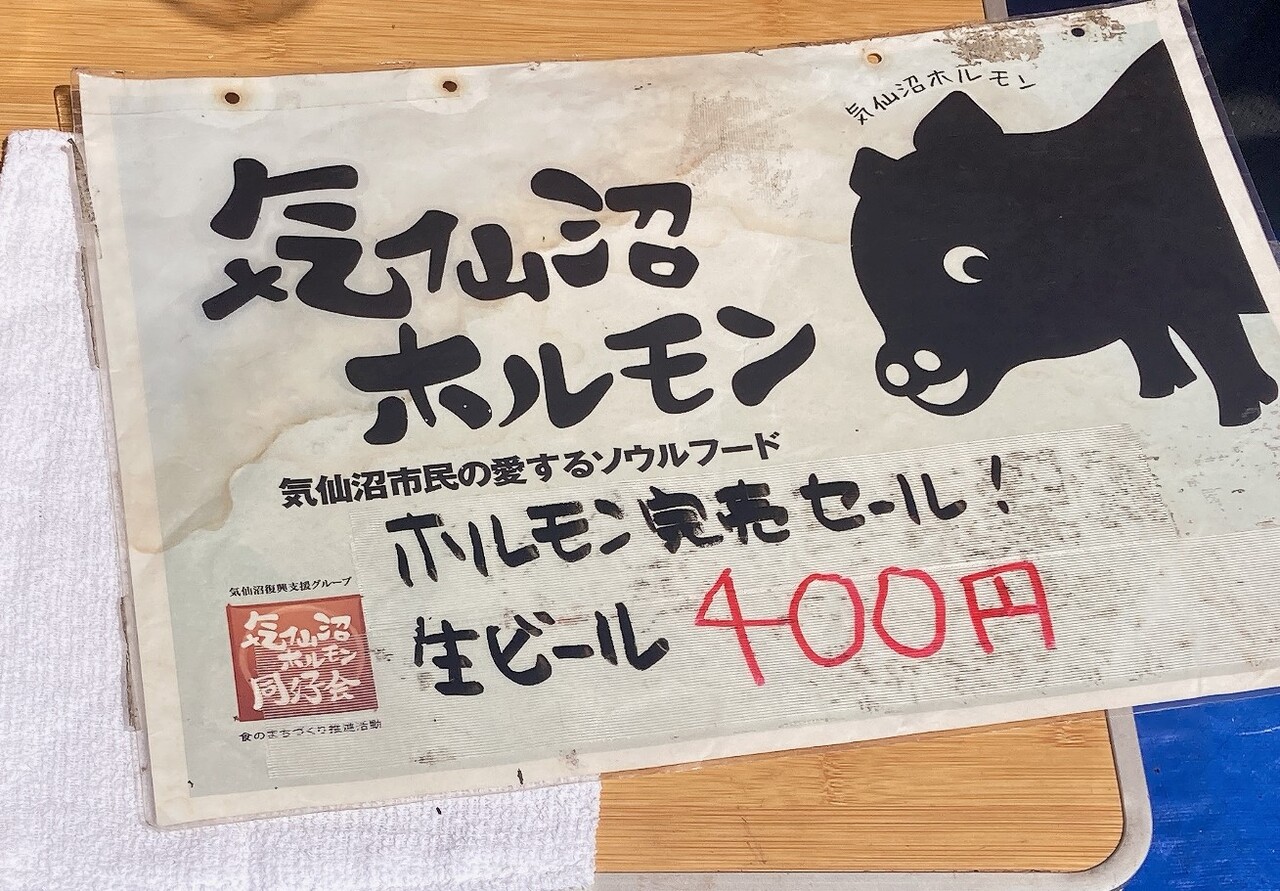 気仙沼ホルモン
気仙沼
ホルモン
気仙沼市民の愛するソウルフード
ホルモン完売セール!
生ビール 400円
気仙沼復興支援グループ
気仙沼
ホルモン
同好会
食のまちづくり推進活動